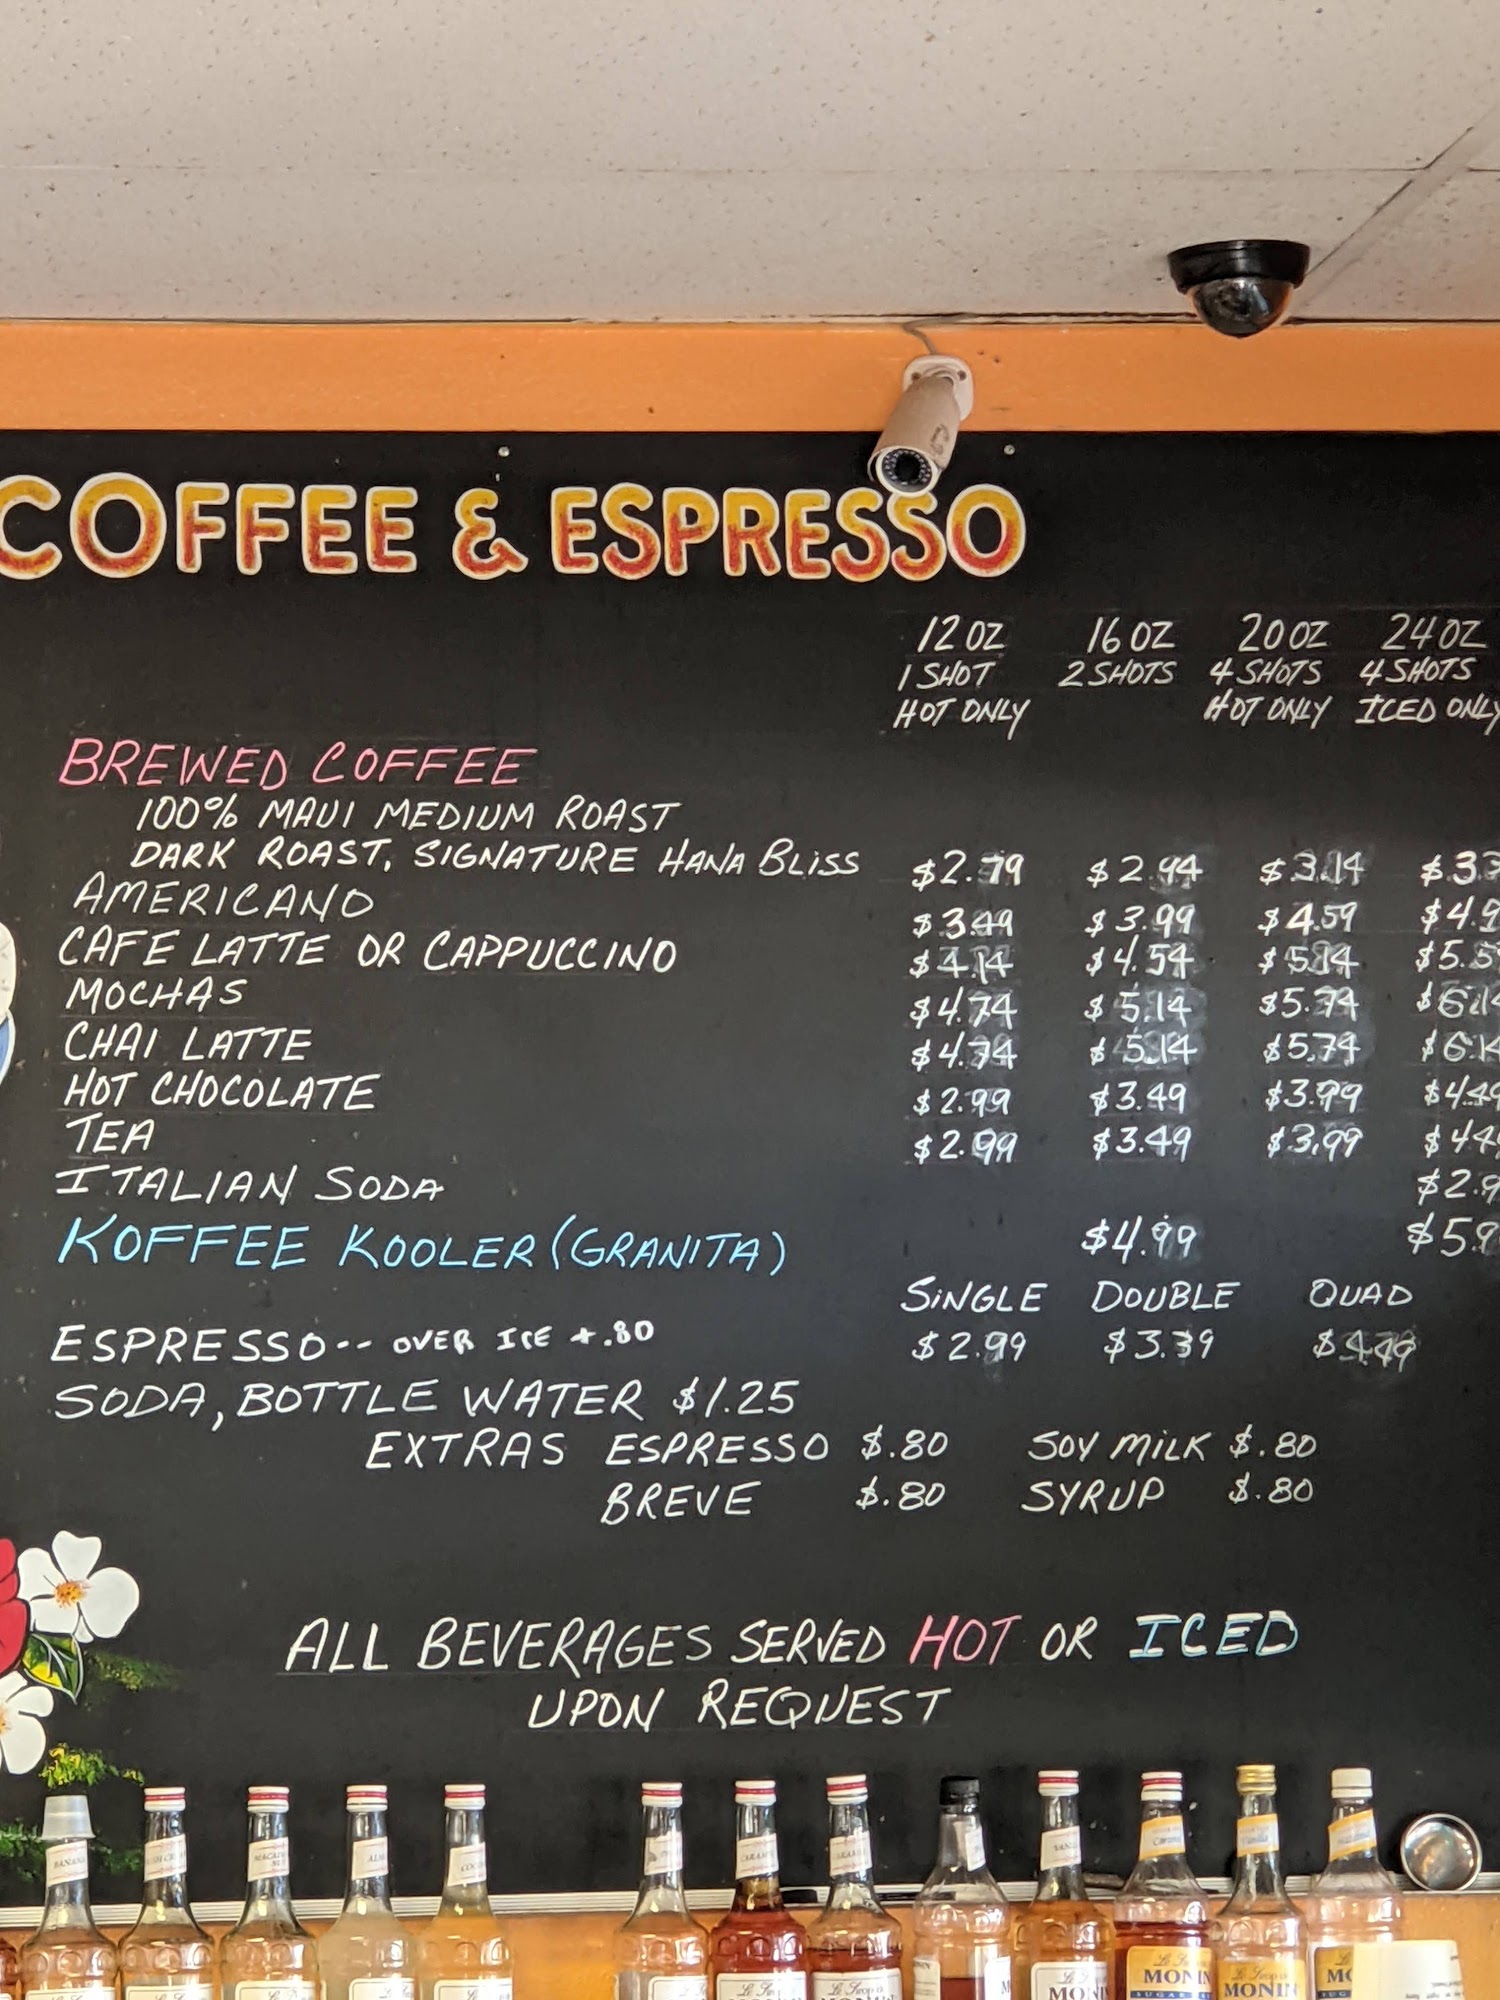 COFFEE & ESPRESSO
12 OZ 16 OZ 20 OZ 24 OZ
1 SHOT 2 SHOTS 4 SHOTS 4 SHOTS
HOT ONLY HOT ONLY ICED ONLY
BREWED COFFEE
100% MAUI MEDIUM ROAST
DARK ROAST, SIGNATURE HANA BLiSS $2.79 $2.94 $3.14
AMERICANO $3.49 $3.99 $4.59
CAFE LATTE OR CAPPUCCINO $4.14 $4.54 $5.14
MOCHAS $4.74 $5.14 $5.74
CHAI LATTE $4.74 $5.14 $5.74
HOT CHOCOLATE $2.99 $3.49 $3.99
TEA $2.99 $3.49 $3.99
ITALIAN SODA
KOFFEE KOOLER (GRANITA) $4.99
SiNGLE DOUBLE QUAD
ESPRESSO-- OVER ICE +.80 $2.99 $3.39 $4.49
SODA, BOTTLE WATER $1.25
EXTRAS ESPRESSO $.80 SOY MiLK $.80
BREVE $.80 SYRUP $.80
ALL BEVERAGES SERVED HOT OR ICED
UPON REQUEST
MONIN
MONIN